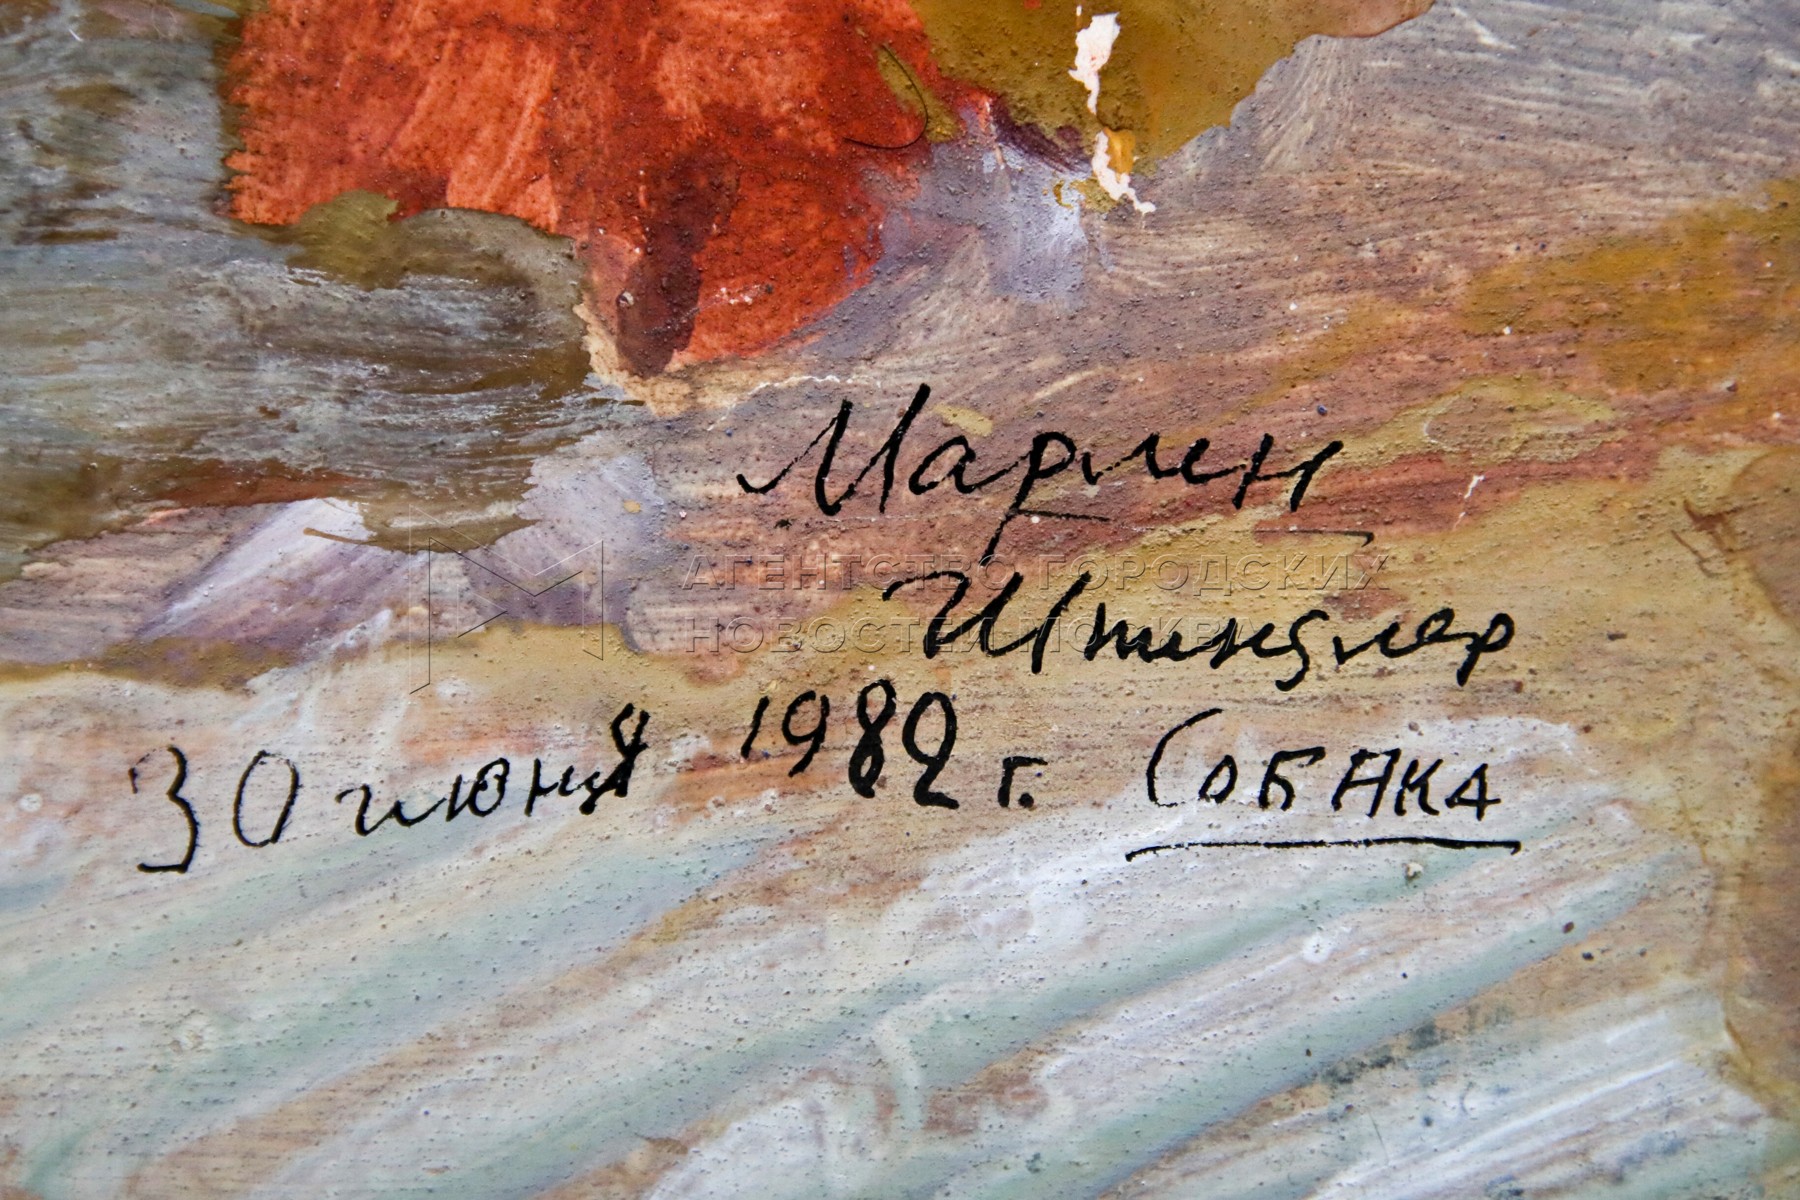 Марлен
Штиндлер
30 июня 1982 г. СОБАКА
АГЕНТСТВО ГОРОДСКИХ
НОВОСТЕЙ МОСКВА